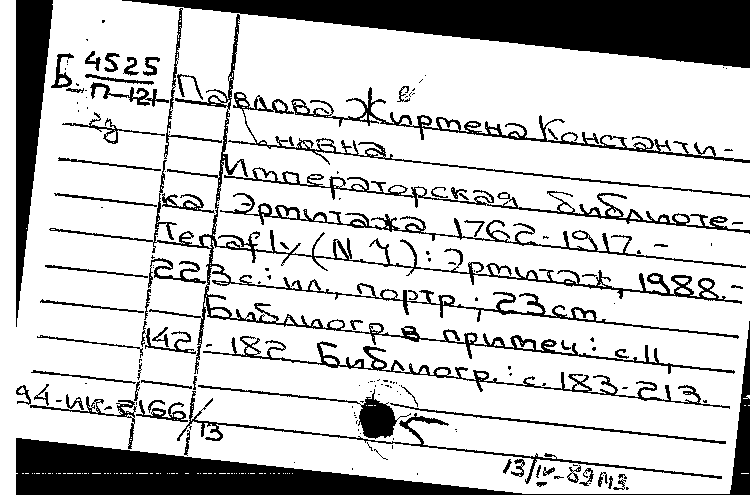 Б 4525
П-121
Павлова, Жиртена Константи-
новна.
Императорская библиоте-
ка Эрмитажа, 1762-1917. -
Tenafly (N.Y.): Эрмитаж, 1988. -
223 с.: ил., портр.; 23 cm.
Библиогр в примеч.: с. 11,
142-182. Библиогр.: с. 183-213.
94-ик-2166/13
13/IV-89 мз